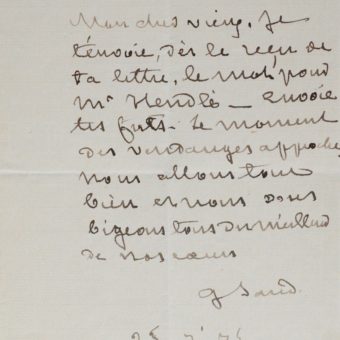 Mon cher vieux, je
t'envoie, dès le reçu de
ta lettre, le mot pour
Mr Hendlé – Envoie
tes futs. Le moment
des vendanges approche
nous allons tous
bien et nous vous
bigeons tous du meilleur
de nos cœurs
G Sand